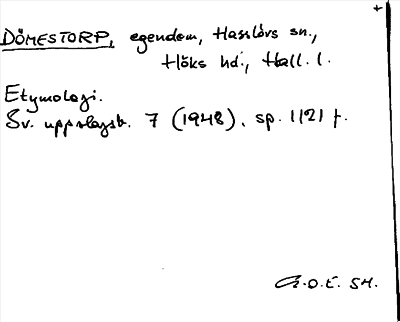 DÖMESTORP, egendom, Hasslövs sn.,
Höks hd., Hall. l.
Etymologi.
Sv. uppslagsb. 7 (1948), sp. 1121 f.
G.O.E. SH.